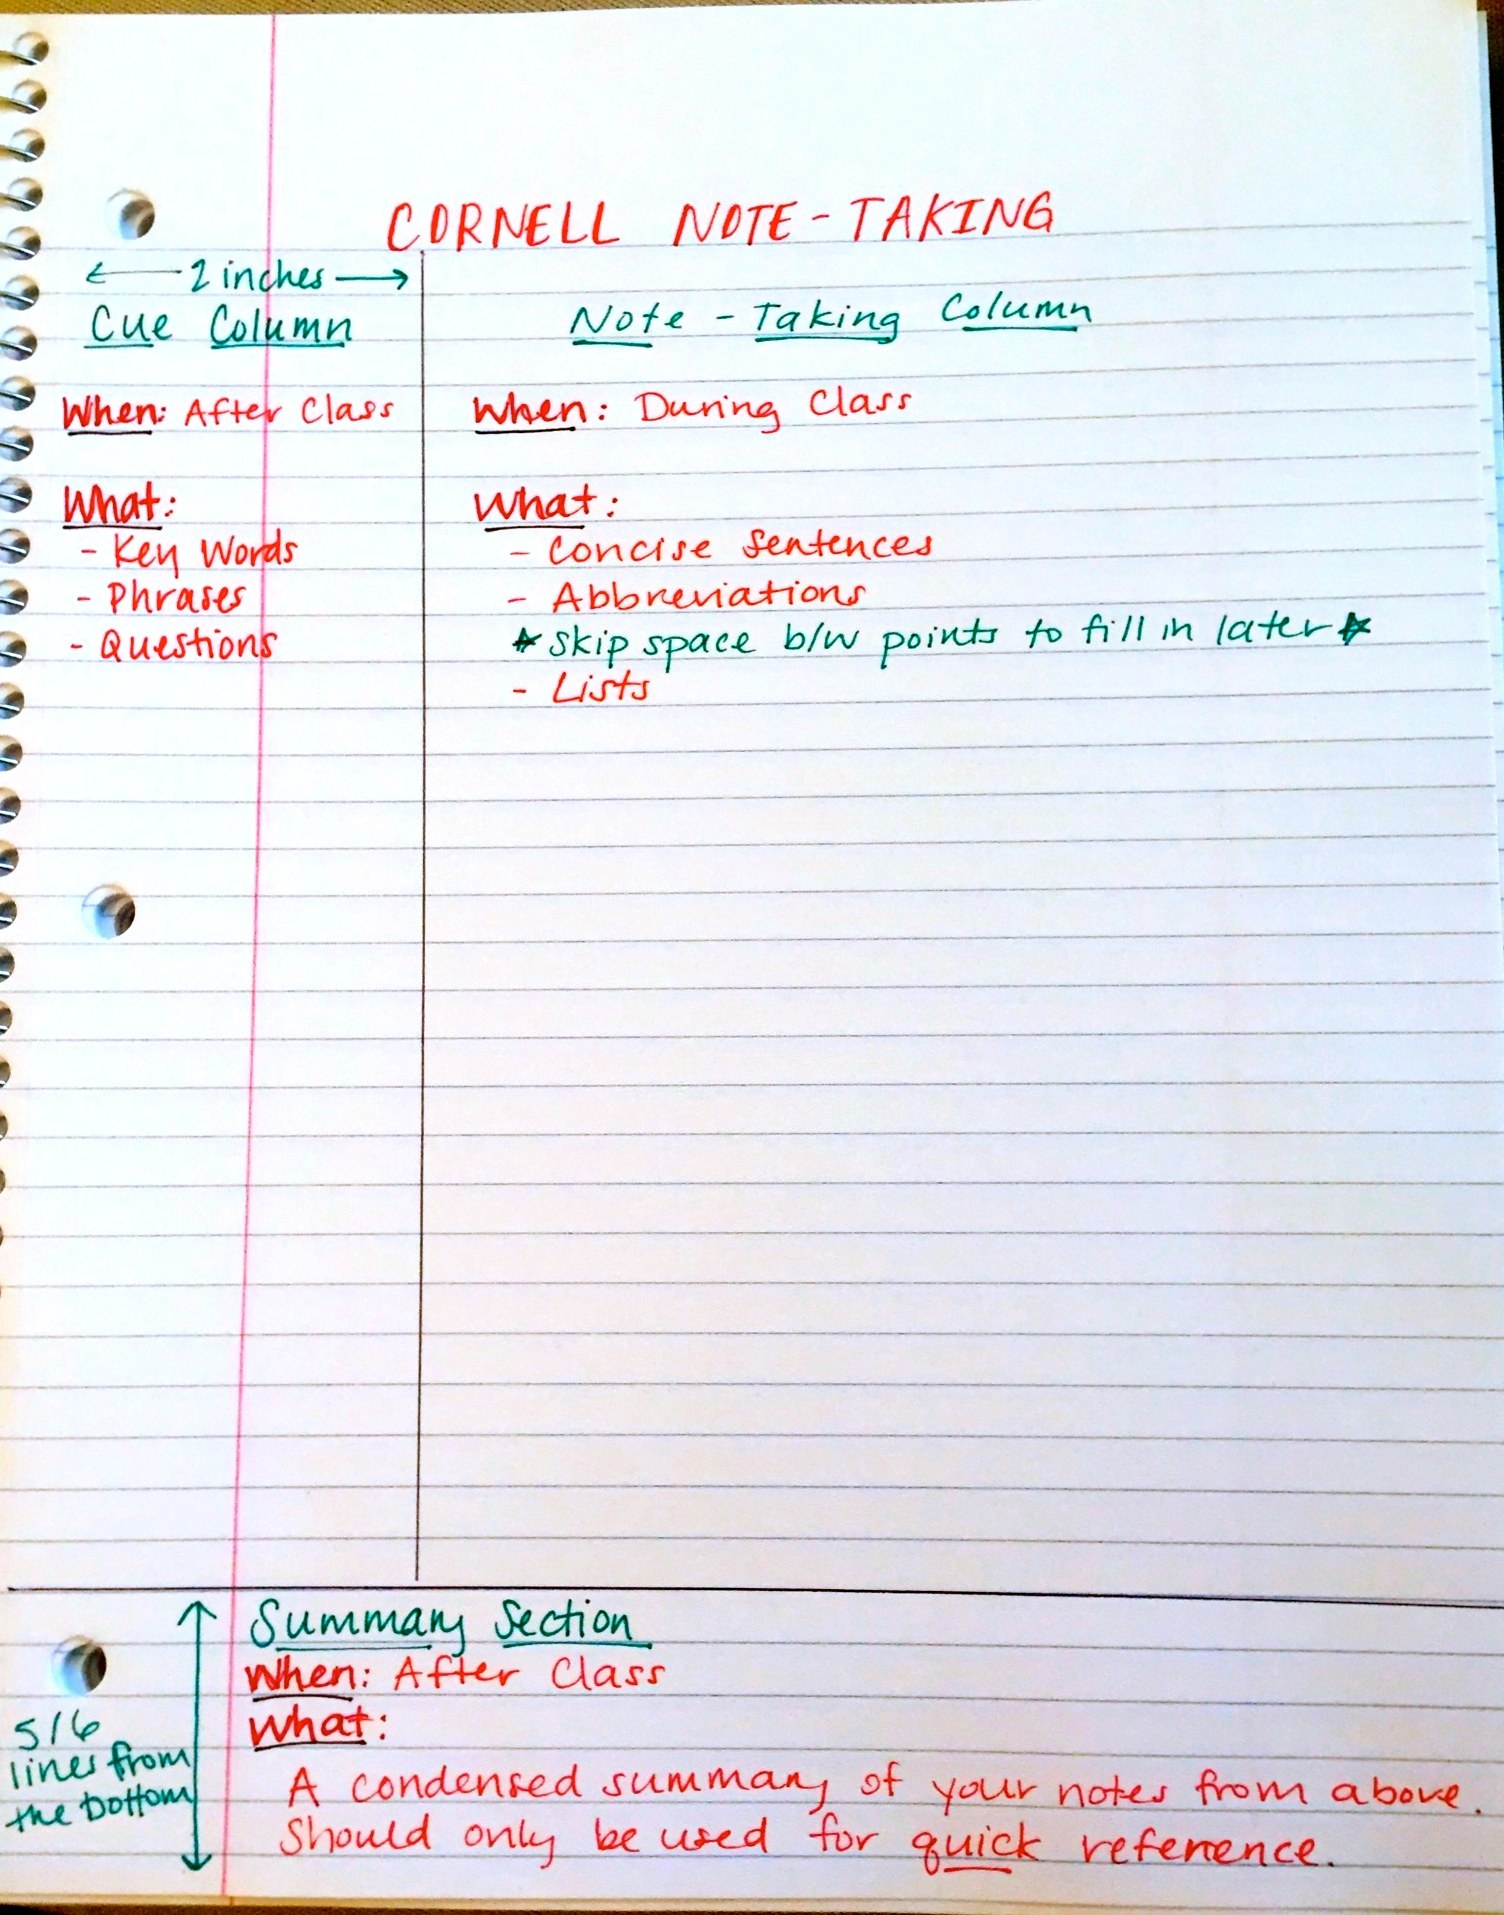 CORNELL NOTE-TAKING
2 inches
Cue Column
When: After Class
What:
- Key Words
- Phrases
- Questions
Note-Taking Column
When: During Class
What:
- Concise Sentences
- Abbreviations
* Skip space b/w points to fill in later *
- Lists
5/6
lines from
the bottom
Summary Section
When: After Class
What:
A condensed summary of your notes from above.
Should only be used for quick reference.